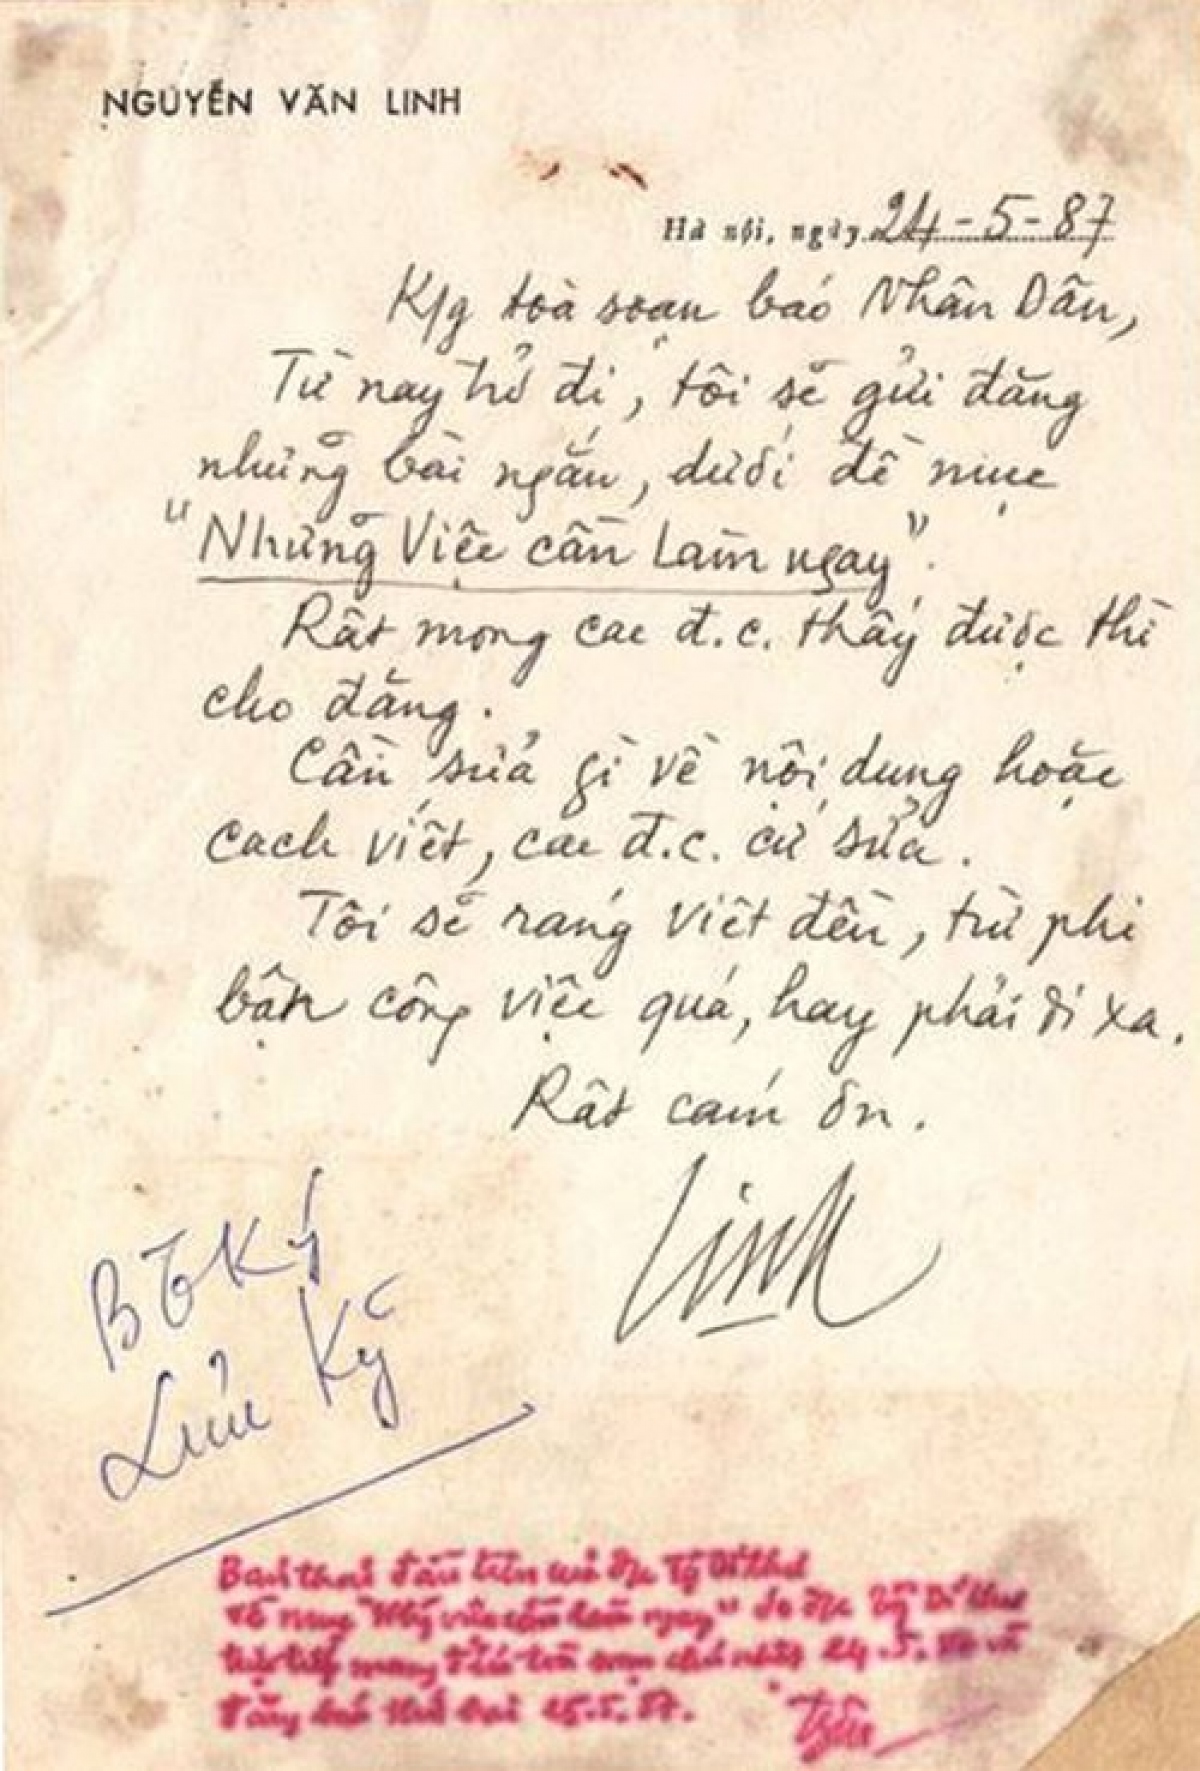 NGUYỄN VĂN LINH
Hà nội, ngày 24-5-87
K/g toà soạn báo Nhân Dân,
Từ nay trở đi, tôi sẽ gửi đăng
những bài ngắn, dưới đề mục
"Những Việc cần Làm ngay".
Rất mong các đ.c. thấy được thì
cho đăng.
Cần sửa gì về nội dung hoặc
cách viết, các đ.c. cứ sửa.
Tôi sẽ ráng viết đều, trừ phi
bận công việc quá, hay phải đi xa.
Rất cám ơn.
Linh
Lưu Ký
Bản thảo đầu tiên của đ/c Tổng Bí thư
về mục "Những việc cần làm ngay" do đ/c Tổng Bí thư
trực tiếp mang đến toà soạn chủ nhật 24.5.87 và
đăng báo thứ hai 25.5.87.